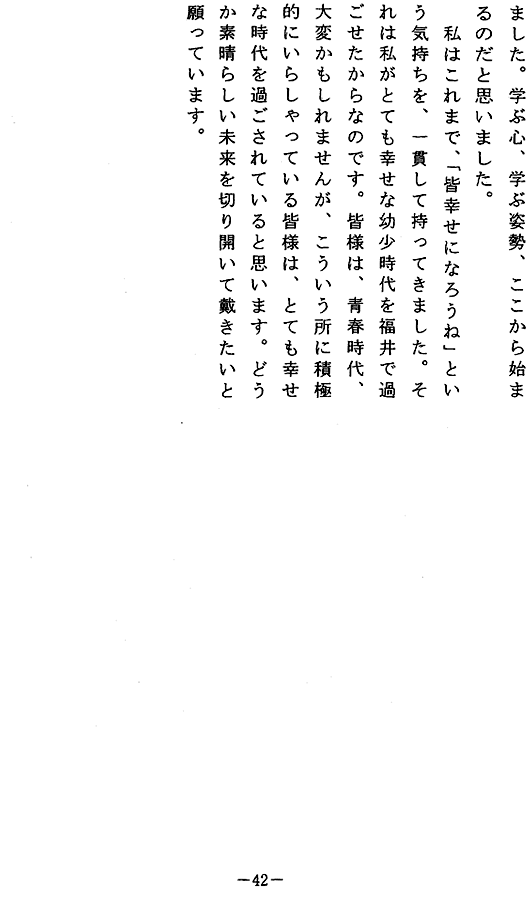 ました。学ぶ心、学ぶ姿勢、ここから始ま
るのだと思いました。
　私はこれまで、「皆幸せになろうね」とい
う気持ちを、一貫して持ってきました。そ
れは私がとても幸せな幼少時代を福井で過
ごせたからなのです。皆様は、青春時代、
大変かもしれませんが、こういう所に積極
的にいらしゃっている皆様は、とても幸せ
な時代を過ごされていると思います。どう
か素晴らしい未来を切り開いて戴きたいと
願っています。
－42－